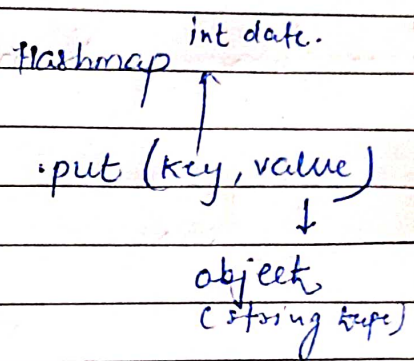 int date.
Hashmap
.put (key, value)
object
(string type)